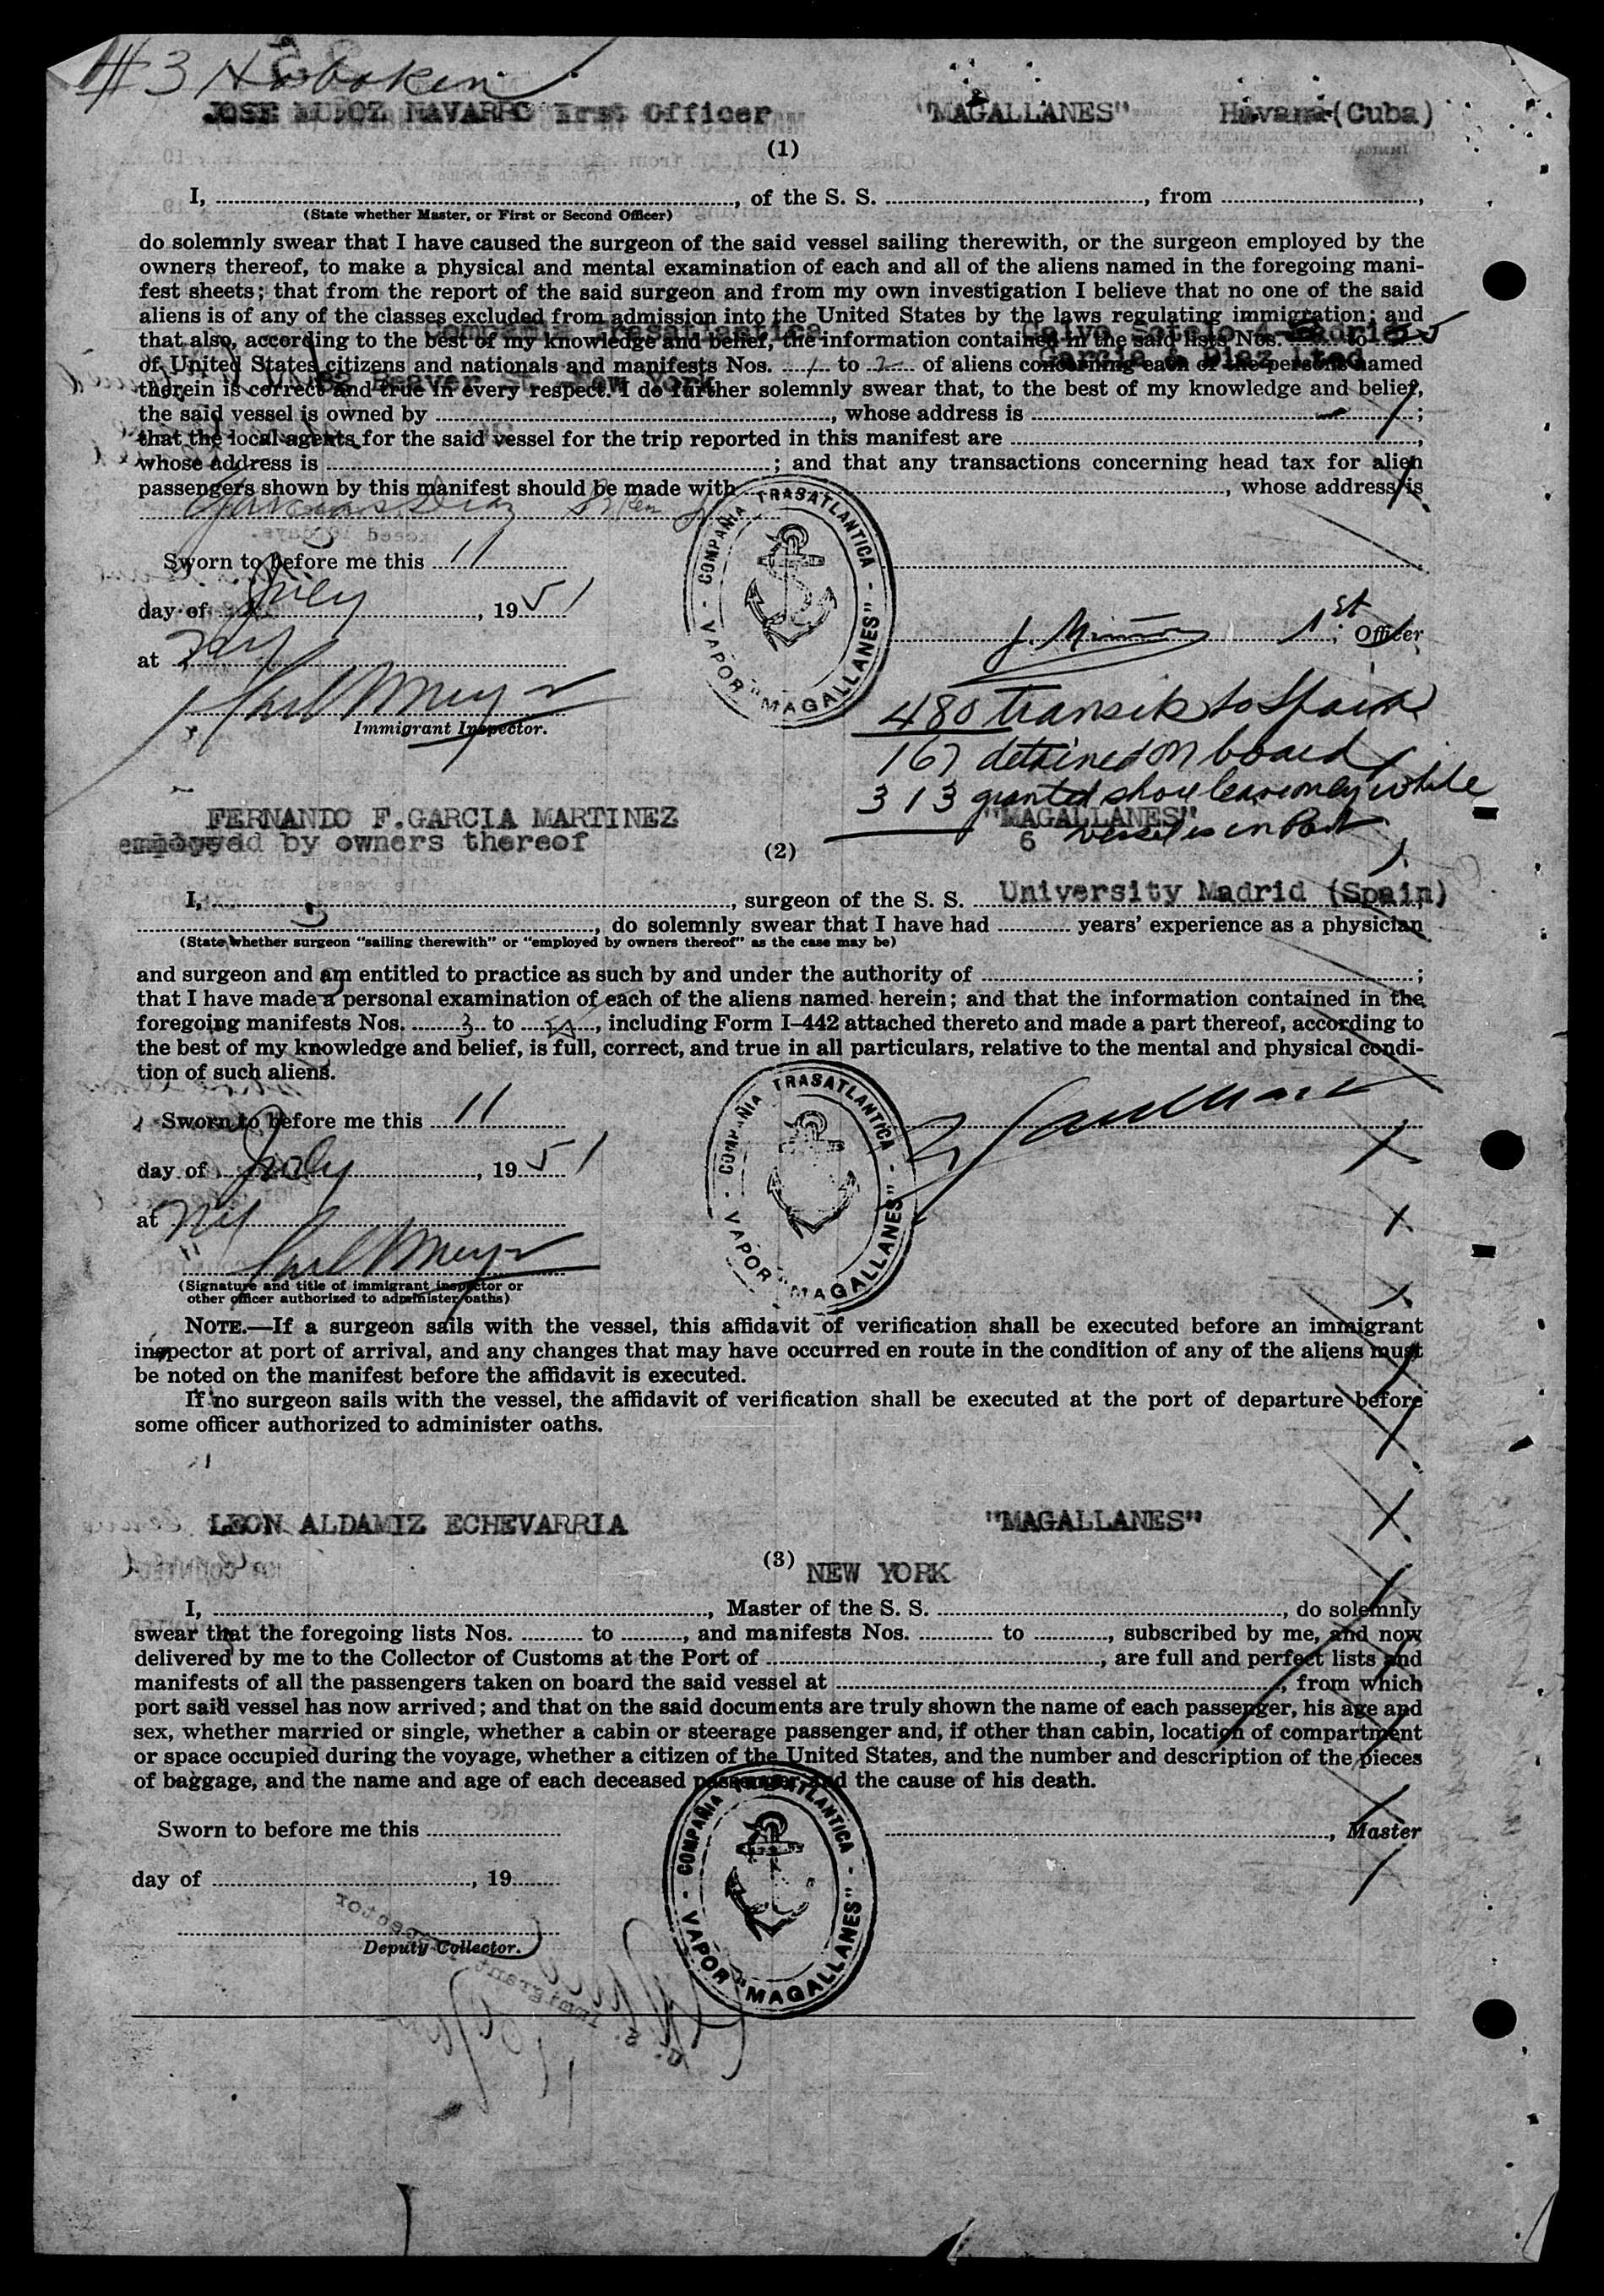 #3 Hoboken
JOSE MUÑOZ NAVARRO First Officer "MAGALLANES" Havana (Cuba)
(1)
I, ......, of the S. S. ......, from ......,
(State whether Master, or First or Second Officer)
do solemnly swear that I have caused the surgeon of the said vessel sailing therewith, or the surgeon employed by the
owners thereof, to make a physical and mental examination of each and all of the aliens named in the foregoing mani-
fest sheets; that from the report of the said surgeon and from my own investigation I believe that no one of the said
aliens is of any of the classes excluded from admission into the United States by the laws regulating immigration; and
Compañia Trasatlantica Calvo Sotelo 4 Madrid
that also, according to the best of my knowledge and belief, the information contained in the said lists Nos. ...... to ......
Garcia & Diaz Lted
of United States citizens and nationals and manifests Nos. 1 to 2 of aliens concerning each of the persons named
Beaver St. New York
therein is correct and true in every respect. I do further solemnly swear that, to the best of my knowledge and belief,
the said vessel is owned by ......, whose address is ......;
that the local agents for the said vessel for the trip reported in this manifest are ......,
whose address is ......; and that any transactions concerning head tax for alien
passengers shown by this manifest should be made with ......, whose address is
COMPAÑIA TRASATLANTICA - VAPOR "MAGALLANES" -
Sworn to before me this 11
day of July, 1951
J. Muñoz 1st Officer
at NY
Karl Meyer
Immigrant Inspector.
480 transits to Spain
167 detained on board
313 granted shore leave only while
vessel is in Port
FERNANDO F.GARCIA MARTINEZ "MAGALLANES"
employed by owners thereof 6
(2)
I, ......, surgeon of the S. S. ...... University Madrid (Spain)
......, do solemnly swear that I have had ...... years' experience as a physician
(State whether surgeon "sailing therewith" or "employed by owners thereof" as the case may be)
and surgeon and am entitled to practice as such by and under the authority of ......;
that I have made a personal examination of each of the aliens named herein; and that the information contained in the
foregoing manifests Nos. 3 to ......, including Form I-442 attached thereto and made a part thereof, according to
the best of my knowledge and belief, is full, correct, and true in all particulars, relative to the mental and physical condi-
tion of such aliens.
COMPAÑIA TRASATLANTICA - VAPOR "MAGALLANES" -
Sworn to before me this 11
day of July, 1951
at NY
Karl Meyer
(Signature and title of immigrant inspector or
other officer authorized to administer oaths)
NOTE.—If a surgeon sails with the vessel, this affidavit of verification shall be executed before an immigrant
inspector at port of arrival, and any changes that may have occurred en route in the condition of any of the aliens must
be noted on the manifest before the affidavit is executed.
If no surgeon sails with the vessel, the affidavit of verification shall be executed at the port of departure before
some officer authorized to administer oaths.
LEON ALDAMIZ ECHEVARRIA "MAGALLANES"
(3)
NEW YORK
I, ......, Master of the S. S. ......, do solemnly
swear that the foregoing lists Nos. ...... to ......, and manifests Nos. ...... to ......, subscribed by me, and now
delivered by me to the Collector of Customs at the Port of ......, are full and perfect lists and
manifests of all the passengers taken on board the said vessel at ......, from which
port said vessel has now arrived; and that on the said documents are truly shown the name of each passenger, his age and
sex, whether married or single, whether a cabin or steerage passenger and, if other than cabin, location of compartment
or space occupied during the voyage, whether a citizen of the United States, and the number and description of the pieces
of baggage, and the name and age of each deceased passenger, and the cause of his death.
COMPAÑIA TRASATLANTICA - VAPOR "MAGALLANES" -
Sworn to before me this ......
......, Master
day of ......, 19......
Deputy Collector.